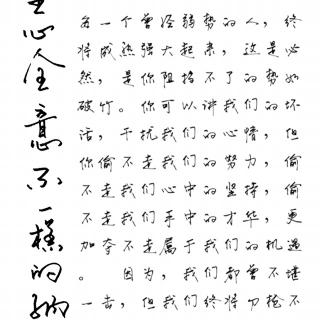 心全意不一样的
每一个曾经弱势的人，终
将成熟强大起来，这是必
然，是你阻挡不了的势如
破竹。你可以讲我们的坏
话，干扰我们的心情，但
你偷不走我们的努力，偷
不走我们心中的坚持，偷
不走我们手中的才华，更
加夺不走属于我们的机遇
。 因为，我们都曾不堪
一击，但我们终将刀枪不